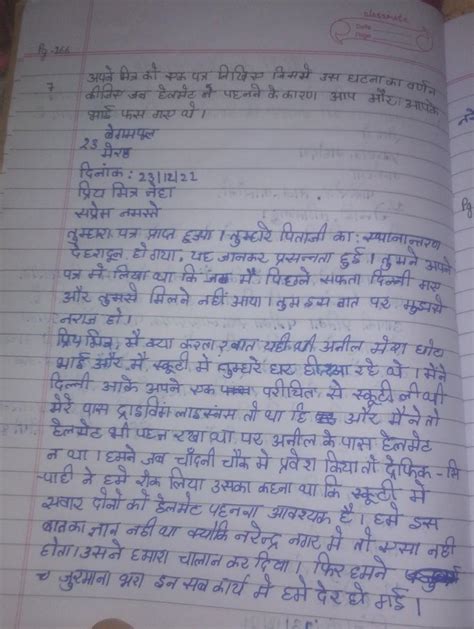 classmate
Date
Page
Pg-266
7 अपने मित्र को एक पत्र लिखिए जिसमे उस घटना का वर्णन
कीजिए जब हेलमेट न पहनने के कारण आप और आपके
भाई फस गए थे।
23 बेगमपुल
मेरठ
दिनांक : 23/12/22
प्रिय मित्र नेहा
सप्रेम नमस्ते
तुम्हारा पत्र प्राप्त हुआ। तुम्हारे पिताजी का: स्थानान्तरण
देहरादून हो गया, यह जानकर प्रसन्नता हुई। तुमने अपने
पत्र मे लिखा था कि जब मै पिछले सफता दिल्ली गए
और तुमसे मिलने नही आया। तुम इस बात पर मुझसे
नराज हो।
प्रिय मित्र, मै क्या करता? बात यही थी अनील मेरा छोटा
भाई और मै स्कूटी मे तुम्हारे घर ही रहे थे। मैने
दिल्ली आके अपने एक परीचित से स्कूटी ली थी
मेरे पास ड्राइविंग लाइसेंस तो था हि और मैने तो
हेलमेट भी पहन रखा था पर अनील के पास हेलमेट
न था। हमने जब चाँदनी चौक मे प्रवेश किया तो ट्रैफिक-सि
-पाही ने हमे रोक लिया उसका कहना था कि स्कूटी मे
सवार दोनो को हेलमेट पहनना आवश्यक है। हमे इस
बात का ज्ञान नही था क्योकि नरेन्द्र नगर मे तो एसा नही
होता। उसने हमारा चालान कर दिया। फिर हमने
जुरमाना भरा इन सब कार्य मे हमे देर हो गई।